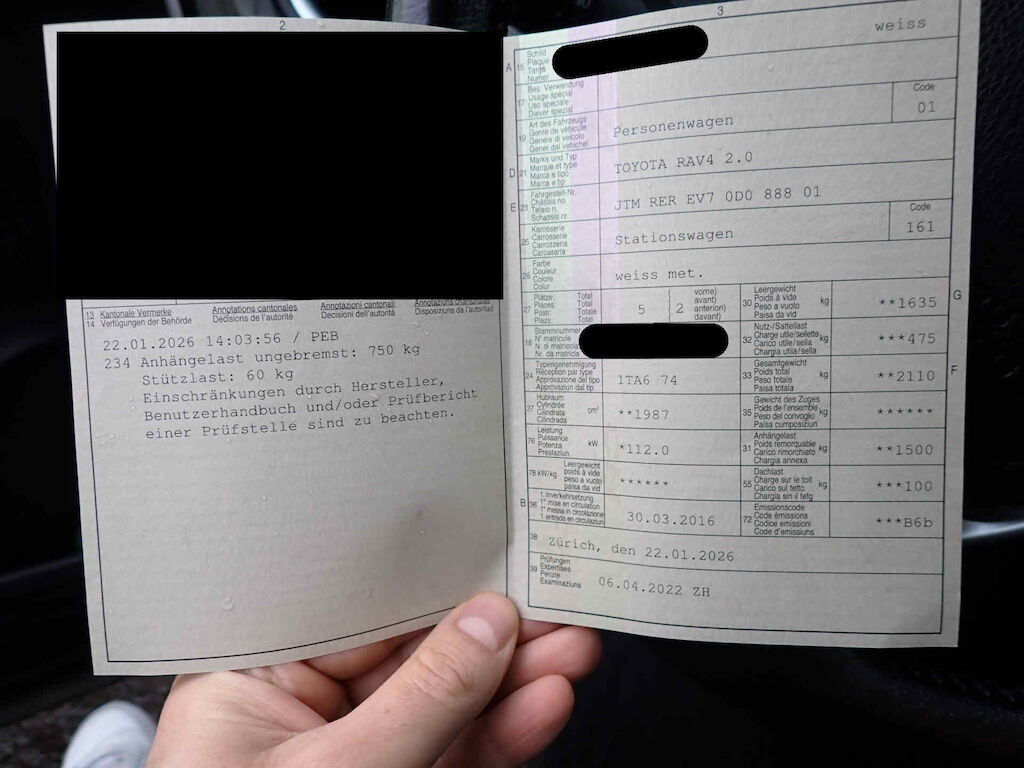 2
13 Kantonale Vermerke Annotations cantonales Annotazioni cantonali Annotaziuns chantunalas
14 Verfügungen der Behörde Décisions de l'autorité Decisioni dell'autorità Disposiziuns da l'autoritad
22.01.2026 14:03:56 / PEB
234 Anhängelast ungebremst: 750 kg
Stützlast: 60 kg
Einschränkungen durch Hersteller,
Benutzerhandbuch und/oder Prüfbericht
einer Prüfstelle sind zu beachten.
3
A 15 Schild
Plaque
Targa
Numer
weiss
17 Bes. Verwendung
Usage spécial
Uso speciale
Diever spezial
Code
01
19 Art des Fahrzeugs
Genre de véhicule
Genere di veicolo
Gener dal vehichel
Personenwagen
D 21 Marke und Typ
Marque et type
Marca e tipo
Marca e tip
TOYOTA RAV4 2.0
E 23 Fahrgestell-Nr.
Châssis no
Telaio n.
Schassis nr.
JTM RER EV7 0D0 888 01
25 Karosserie
Carrosserie
Carrozzeria
Carossaria
Stationswagen
Code
161
26 Farbe
Couleur
Colore
Colur
weiss met.
27 Plätze: Total
Places: Total
Posti: Totale
Plazs: Total
5
2
vorne)
avant)
anteriori)
davant)
30 Leergewicht
Poids à vide
Peso a vuoto
Paisa da vid
kg
**1635
G
18 Stammnummer
N° matricule
N. di matricola
Nr. da matricla
32 Nutz-/Sattellast
Charge utile/sellette
Carico utile/sella
Chargia utila/sella
kg
***475
24 Typengenehmigung
Réception par type
Approvazione del tipo
Approvaziun dal tip
1TA6 74
33 Gesamtgewicht
Poids total
Peso totale
Paisa totala
kg
**2110
F
37 Hubraum
Cylindrée
Cilindrata
Cilindrada
cm³
**1987
35 Gewicht des Zuges
Poids de l'ensemble
Peso del convoglio
Paisa cumposiziun
kg
******
76 Leistung
Puissance
Potenza
Prestaziun
kW
*112.0
31 Anhängelast
Poids remorquable
Carico rimorchiato
Chargia annexa
kg
**1500
78 kW/kg
Leergewicht
poids à vide
peso a vuoto
paisa da vid
******
55 Dachlast
Charge sur le toit
Carico sul tetto
Chargia sin il tetg
kg
***100
B 36 1. Inverkehrsetzung
1re mise en circulation
1a messa in circolazione
1. entrada en circulaziun
30.03.2016
72 Emissionscode
Code émissions
Codice emissioni
Code d'emissiuns
***B6b
38 Zürich, den 22.01.2026
39 Prüfungen
Expertises
Perizie
Examinaziuns
06.04.2022 ZH